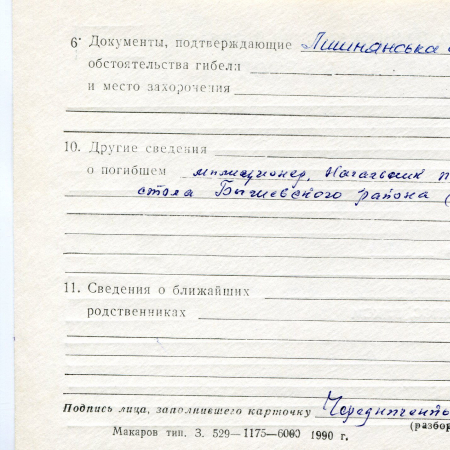 6· Документы, подтверждающие Лишнянська
обстоятельства гибели
и место захоронения
10. Другие сведения
о погибшем милиционер, Начальник п
стола Бышевского района (
11. Сведения о ближайших
родственниках
Подпись лица, заполнившего карточку
(разбор
Макаров тип. З. 529—1175—6000 1990 г.